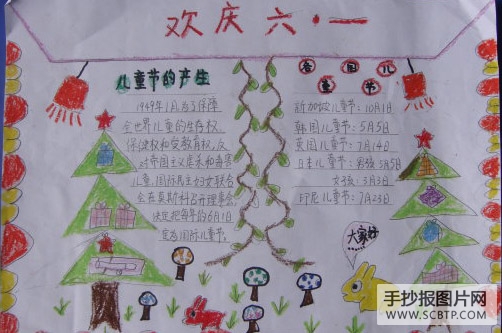 欢庆六·一
儿童节的产生
1949年11月为了保障
全世界儿童的生存权、
保健权和受教育权,反
对帝国主义虐杀和毒害
儿童,国际民主妇女联合
会在莫斯科召开理事会,
决定把每年的6月1日
定为国际儿童节。
各国儿
童节
新加坡儿童节:10月1日
韩国儿童节:5月5日
英国儿童节:7月14日
日本儿童节:男孩5月5日
女孩:3月3日
印尼儿童节:7月23日
大家好
手抄报图片网
WWW.SCBTP.COM